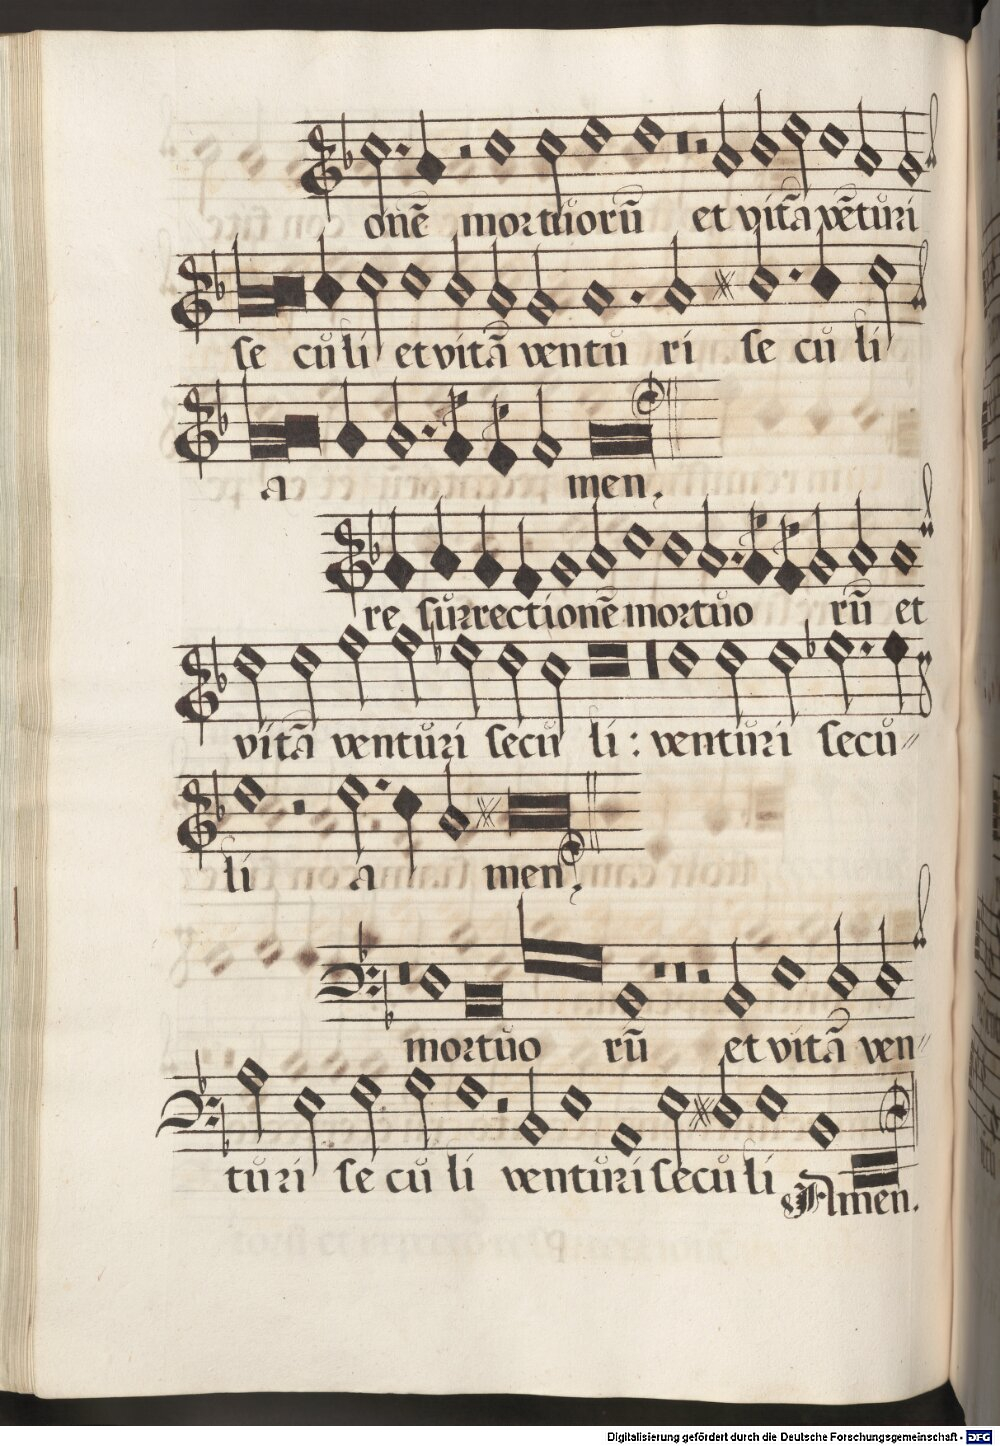 onē mortuorū et vitā vēturi
se culi et vitā ventu ri se cu li
a men.
re surrectionē mortuo rū et
vitā venturi secu li : venturi secu〃
li a men.
mortuo rū et vitā ven〃
turi se cu li venturi seculi Amen.
Digitalisierung gefördert durch die Deutsche Forschungsgemeinschaft - DFG